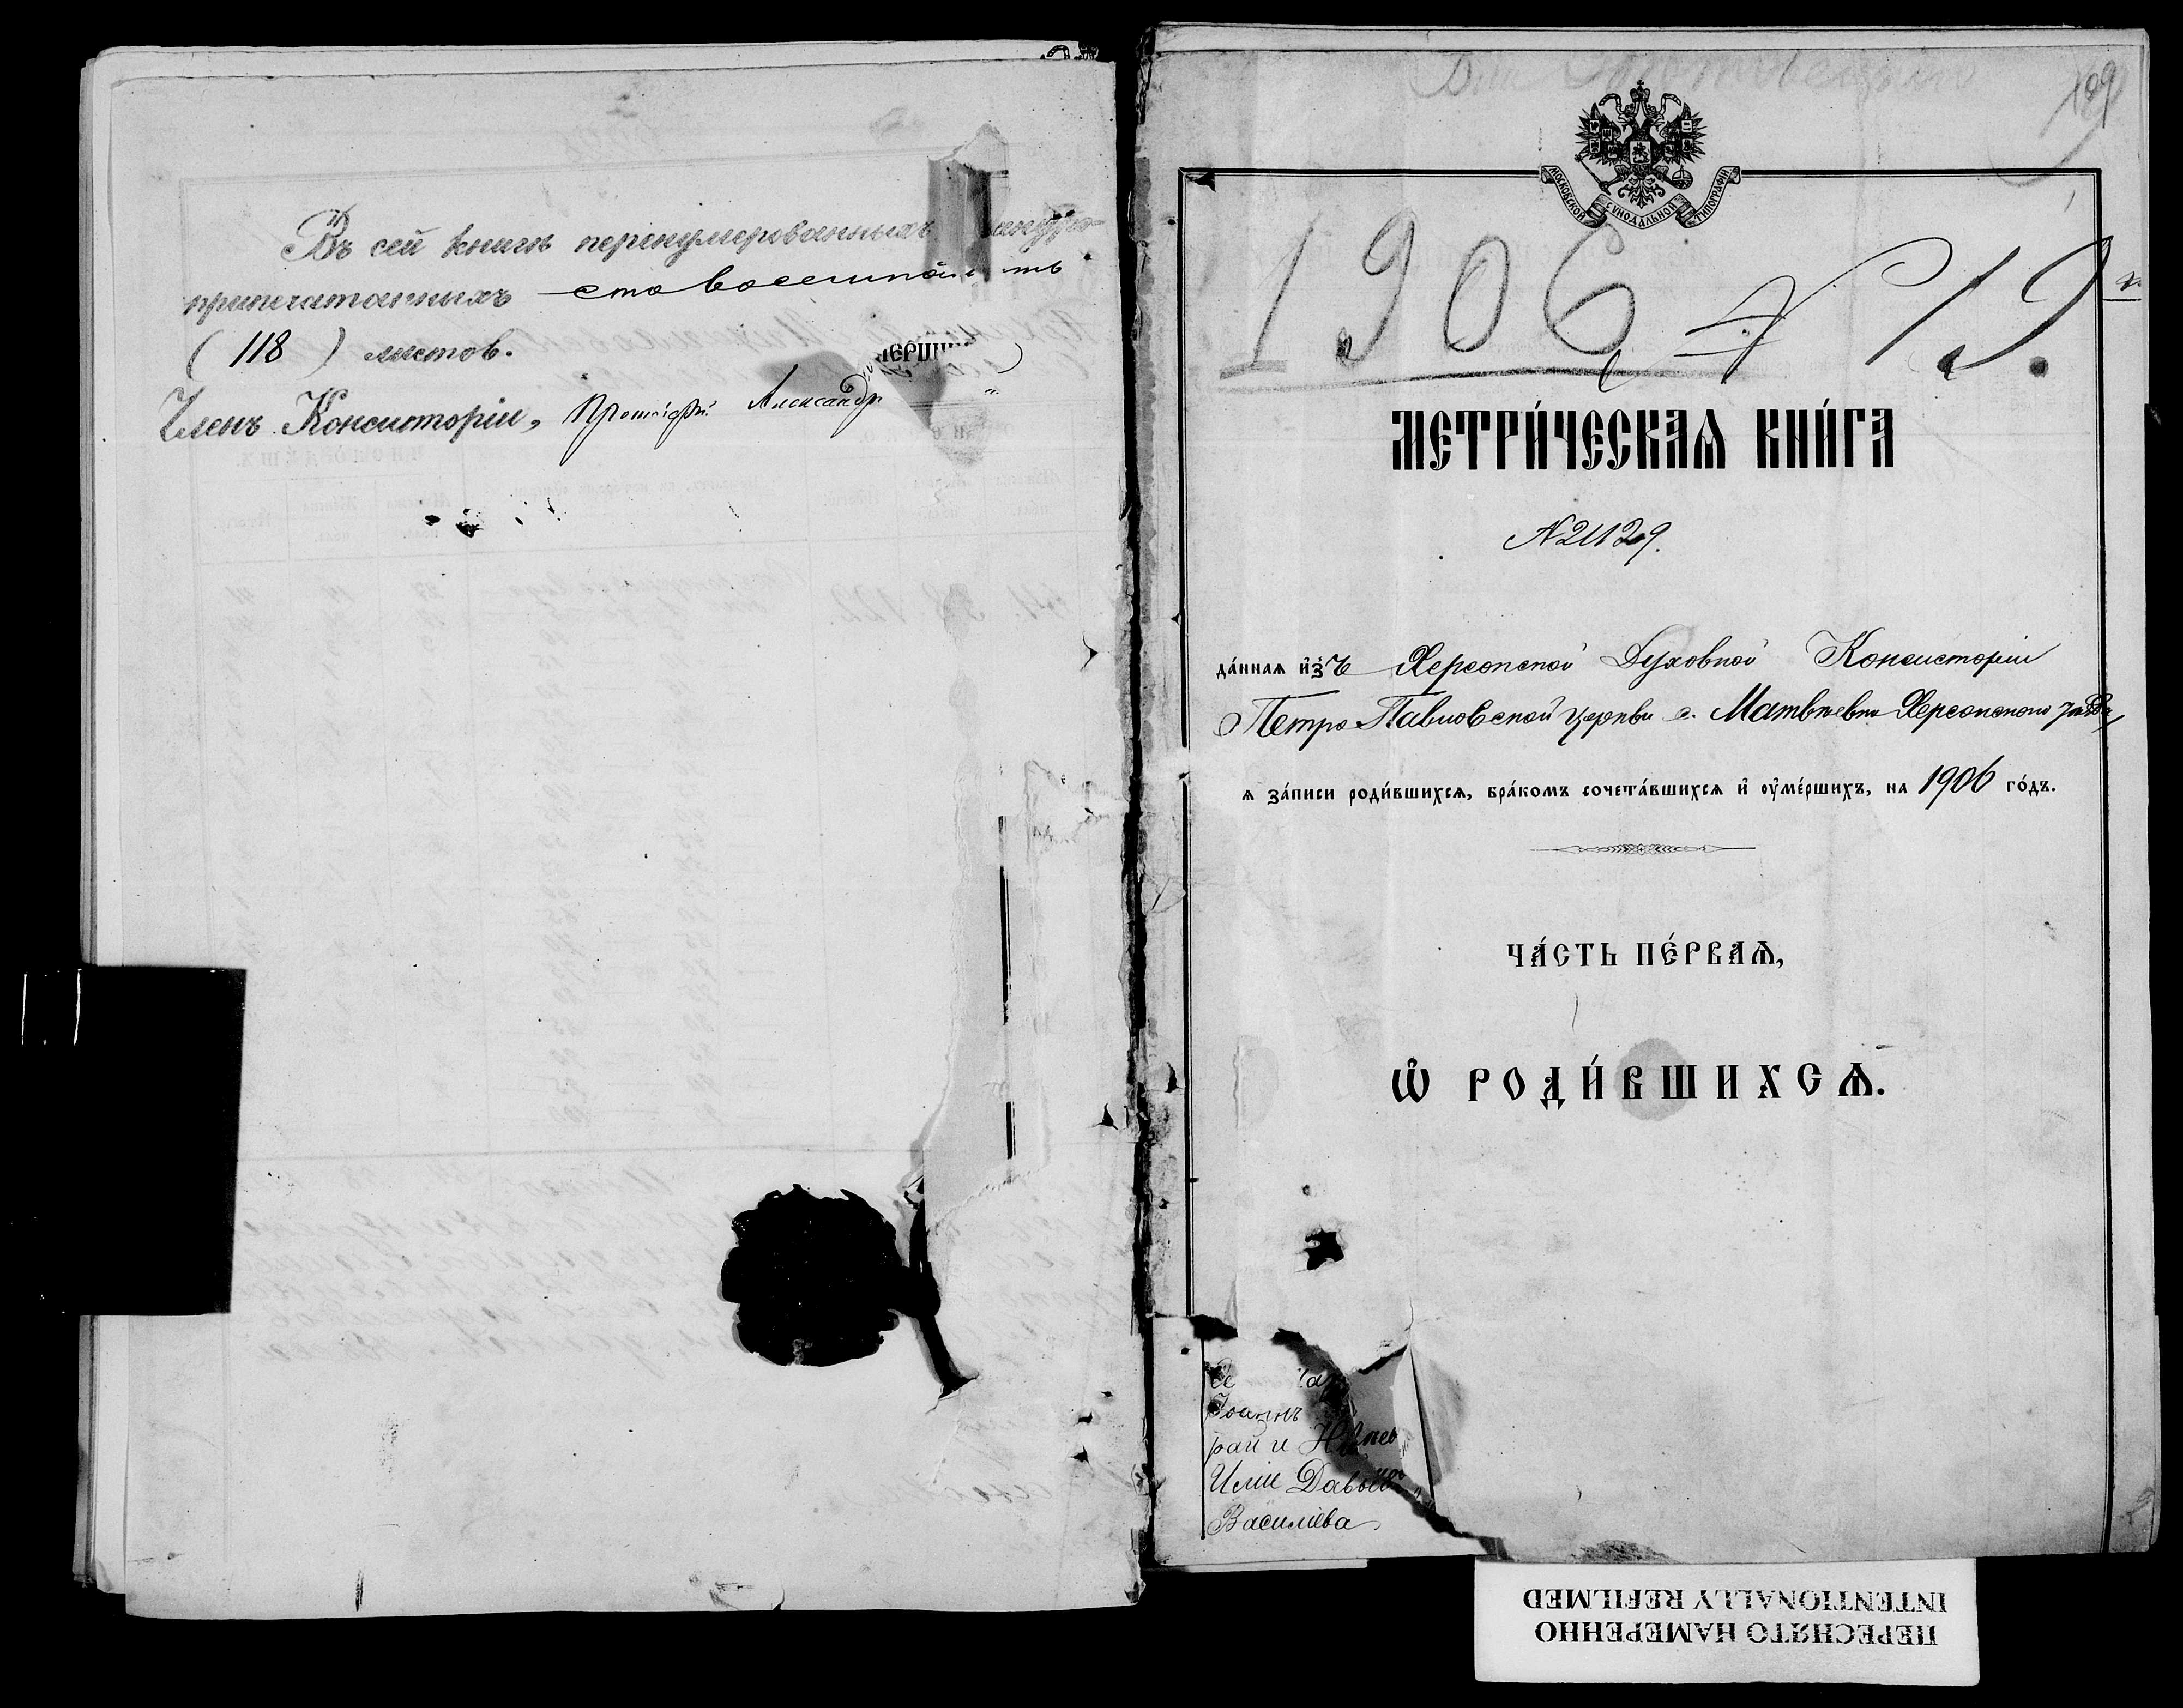 Въ сей книгѣ перенумерованныхъ
припечатанныхъ сто восемнад ть
( 118 ) листов.
Членъ Консисторіи, Александръ
109
МОСКОВСКОЙ СѴНОДАЛЬНОЙ ТИПОГРАФІИ
1906 19
МЕТРИ́ЧЕСКАѦ КНИ́ГА
№21129.
да́ннаѧ и҆зъ Херсонской Духовной Консисторіи
Петро Павловской церкви с. Матвѣевки Херсонского уѣзда,
ѧ за́писи роди́вшихсѧ, бра́комъ сочета́вшихсѧ и҆ ᲂу҆ме́ршихъ, на 1906 го́дъ.
ЧА́СТЬ ПЕ́РВАѦ,
Ѡ҆ РОДИ́ВШИХСѦ.
Іоаннъ
рай и
Иліи Давыдо
Василіева
ПЕРЕСНЯТО НАМЕРЕННО
INTENTIONALLY REFILMED